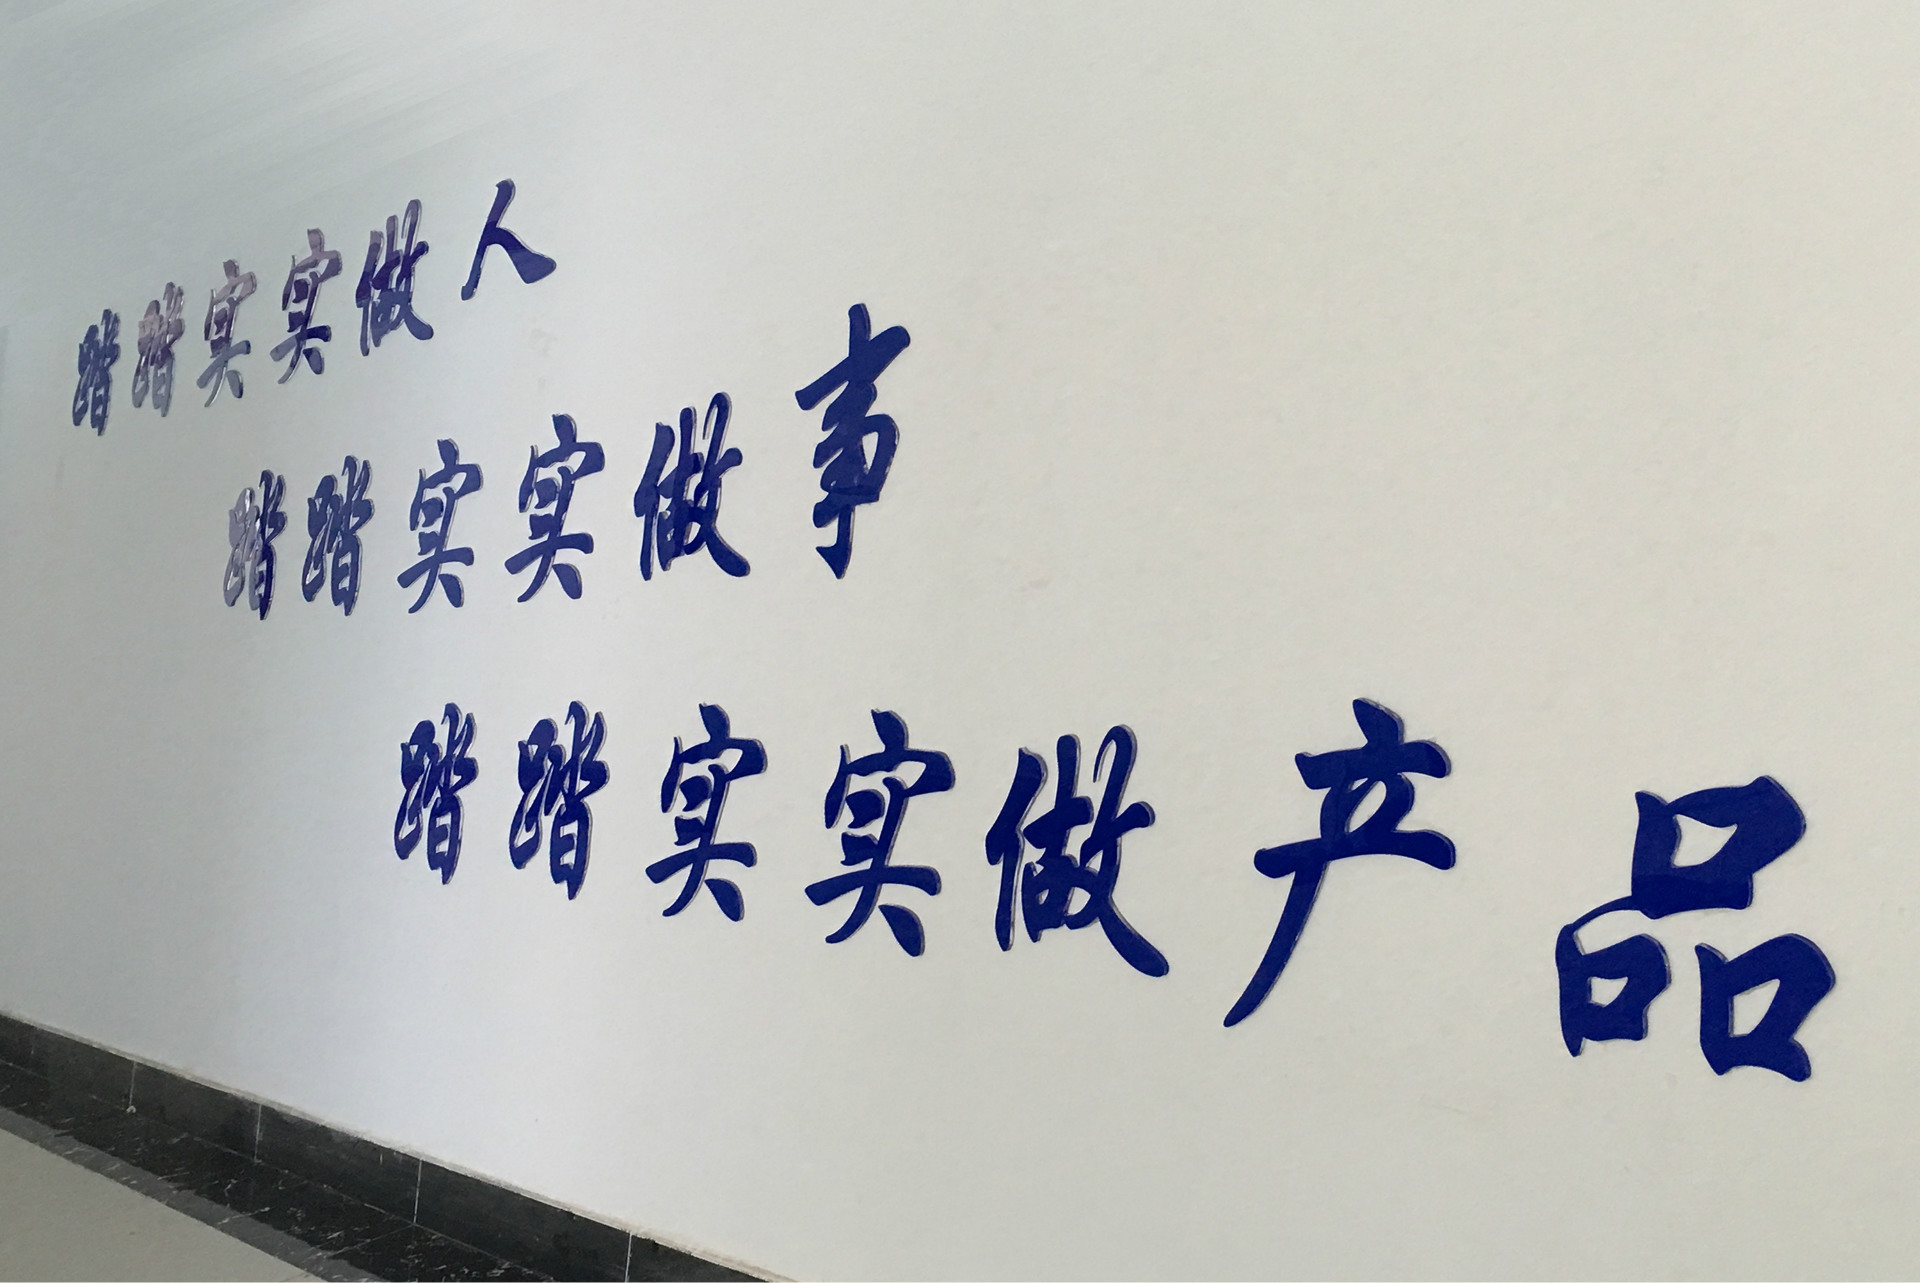 踏踏实实做人
踏踏实实做事
踏踏实实做产品